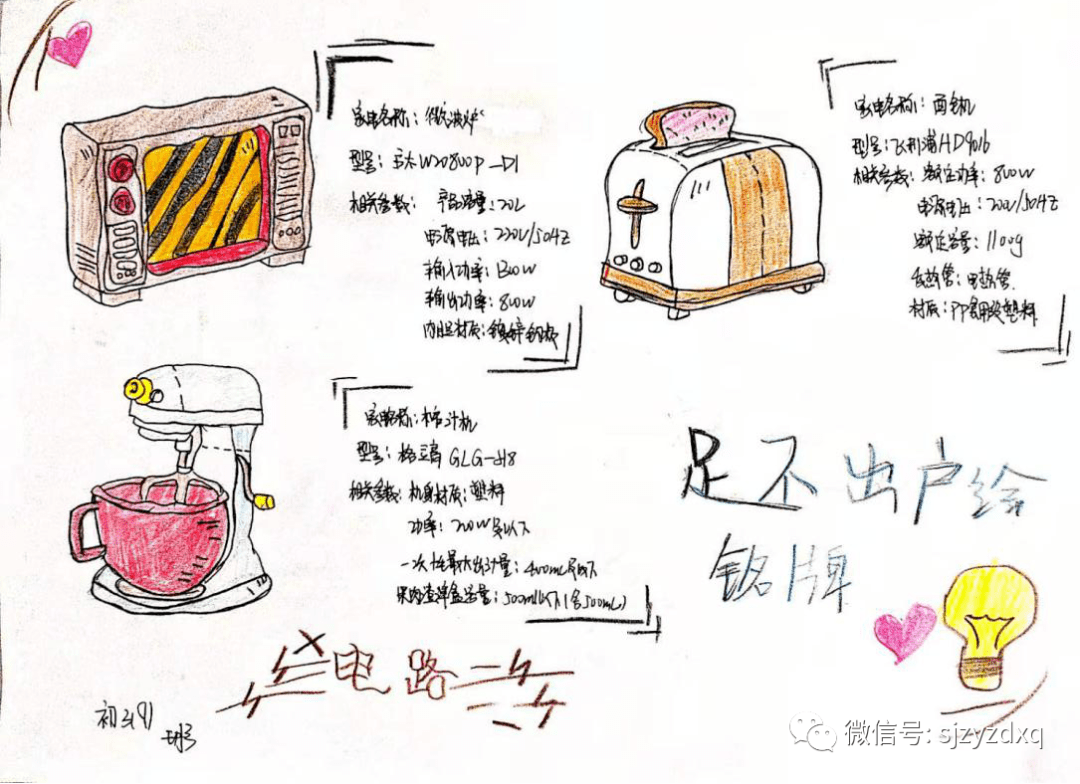 家电名称：微波炉
型号：W20800P-D1
相关参数：产品容量：20L
电源电压：220V/50HZ
输入功率：1300W
输出功率：800W
内胆材质：镀锌钢板
家电名称：面包机
型号：飞利浦HD9016
相关参数：额定功率：800W
电源电压：220V/50HZ
额定容量：1100g
发热管：电热管
材质：PP食用级塑料
家电名称：榨汁机
型号：格立高 GLG-518
相关参数：机身材质：塑料
功率：200W及以下
一次性最大出汁量：400mL及以下
果肉渣滓盒容量：500ml以下(含500mL)
足不出户绘
铭牌
电路
初三(9)
班
微信号: sjzyzdxq